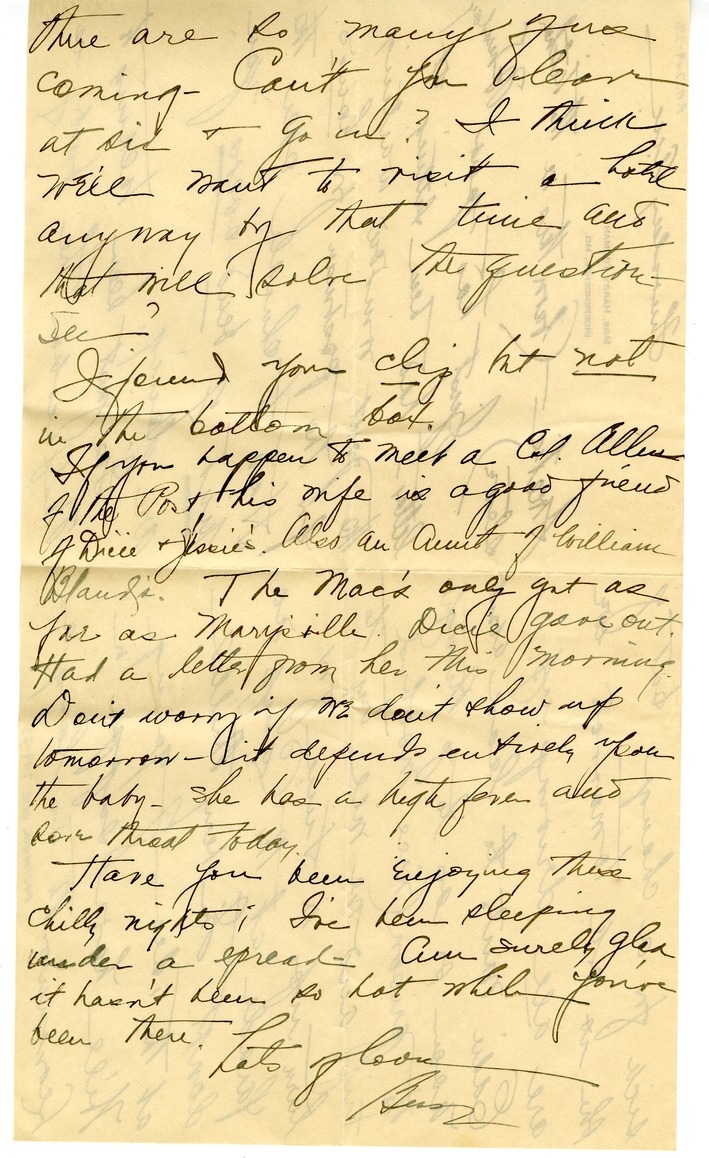 there are so many
coming - Can't you leave
at six + go in? I think
we'll want to visit a hotel
anyway by that time and
that will solve the question -
see?
I found your clip but not
in the bottom box.
If you happen to meet a Col. Allen
of the Post his wife is a good friend
of Dicie + Jessie's. Also an Aunt of William
Bland's. The Mac's only got as
far as Marysville. Dicie gave out.
Had a letter from her this morning.
Don't worry if we don't show up
tomorrow - it depends entirely upon
the baby - she has a high fever and
sore throat today.
Have you been enjoying these
chilly nights? I've been sleeping
under a spread - Am surely glad
it hasn't been so hot while you've
been there.
Lots of love
Bess